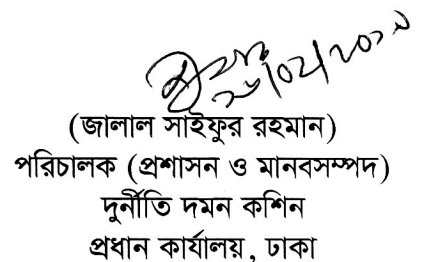 (জালাল সাইফুর রহমান)
পরিচালক (প্রশাসন ও মানবসম্পদ)
দুর্নীতি দমন কশিন
প্রধান কার্যালয়, ঢাকা